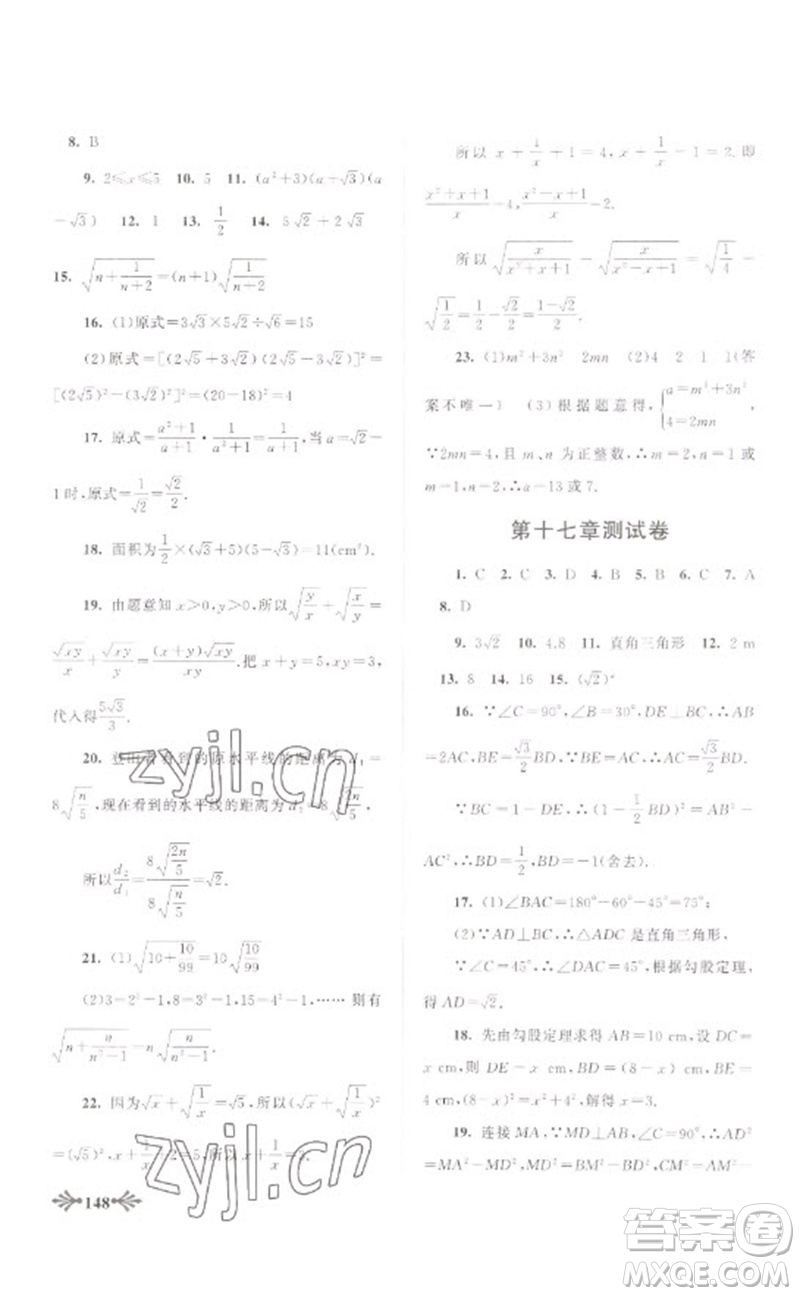 8. B
9. 2≤x≤5 10. 5 11. (a²+3)(a-√3)(a
-√3) 12. 1 13. 1/2 14. 5√2+2√3
15. √(n+1/(n+2))=(n+1)√(1/(n+2))
16. (1)原式=3√3×5√2÷√6=15
(2)原式=[(2√5+3√2)(2√5-3√2)]²=
[(2√5)²-(3√2)²]²=(20-18)²=4
17. 原式=(a²+1)/(a+1)·1/(a²+1)=1/(a+1),当a=√2-
1时,原式=1/√2=√2/2.
18. 面积为1/2×(√3+5)(5-√3)=11(cm²).
19. 由题意知x>0,y>0,所以√(y/x)+√(x/y)=
√(xy)/x+√(xy)/y=(x+y)√(xy)/(xy).把x+y=5,xy=3,
代入得5√3/3.
20. 登山者看到的原水平线的距离为d₁=
8√(n/5),现在看到的水平线的距离为
所以d₂/d₁=8√(2n/5)/8√(n/5)=√2.
21. (1)√(10+10/99)=10√(10/99)
(2)3=2²-1,8=3²-1,15=4²-1,……则有
√(n+n/(n²-1))=n√(n/(n²-1))
22. 因为√x+√(1/x)=√5,所以(√x+√(1/x))²
=(√5)²,x+1/x+2=5,所以x+1/x=3.
148
所以x+1/x+1=4,x+1/x-1=2.即
(x²+x+1)/x=4,(x²-x+1)/x=2.
所以√(x/(x²+x+1))-√(x/(x²-x+1))=√(1/4)-
√(1/2)=1/2-√2/2=(1-√2)/2.
23. (1)m²+3n² 2mn (2)4 2 1 1(答
案不唯一) (3)根据题意得,{a=m²+3n² 4=2mn
∵2mn=4,且m、n为正整数,∴m=2,n=1或
m=1,n=2,∴a=13或7.
第十七章测试卷
1. C 2. C 3. D 4. B 5. B 6. C 7. A
8. D
9. 3√2 10. 4.8 11. 直角三角形 12. 2 m
13. 8 14. 16 15. (√2)ⁿ
16. ∵∠C=90°,∠B=30°,DE⊥BC,∴AB
=2AC,BE=√3/2BD.∵BE=AC,∴AC=√3/2BD.
∵BC=1-DE,∴(1-1/2BD)²=AB²-
AC²,∴BD=1/2,BD=-1(舍去).
17. (1)∠BAC=180°-60°-45°=75°;
(2)∵AD⊥BC,∴△ADC是直角三角形,
∵∠C=45°,∴∠DAC=45°,根据勾股定理,
得AD=√2.
18. 先由勾股定理求得AB=10 cm,设DC=
x cm,则DE=x cm,BD=(8-x) cm,BE=
4 cm,(8-x)²=x²+4²,解得x=3.
19. 连接MA,∵MD⊥AB,∠C=90°,∴AD²
=MA²-MD²,BD²=BM²-MD²,CM²=MA²-
zyjl.cn
zyjl.cn
答案卷
MXQE.COM